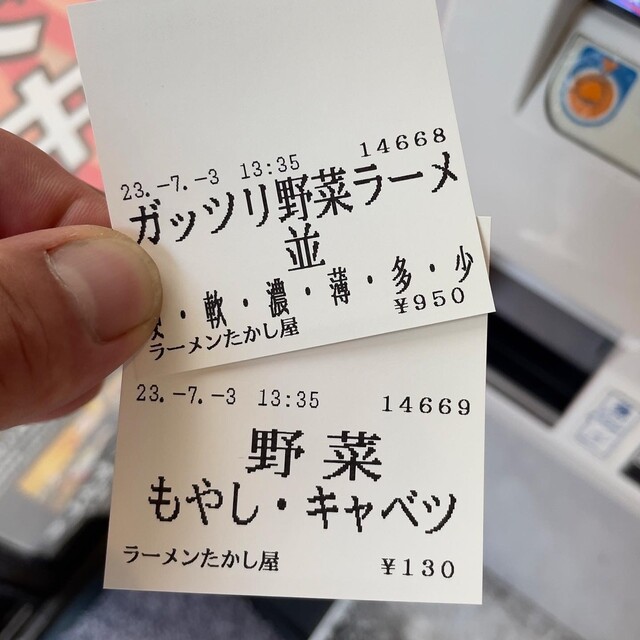 23.-7.-3 13:35 14668
ガッツリ野菜ラーメ
並
・軟・濃・薄・多・少
¥950
ラーメンたかし屋
23.-7.-3 13:35 14669
野菜
もやし・キャベツ
ラーメンたかし屋 ¥130